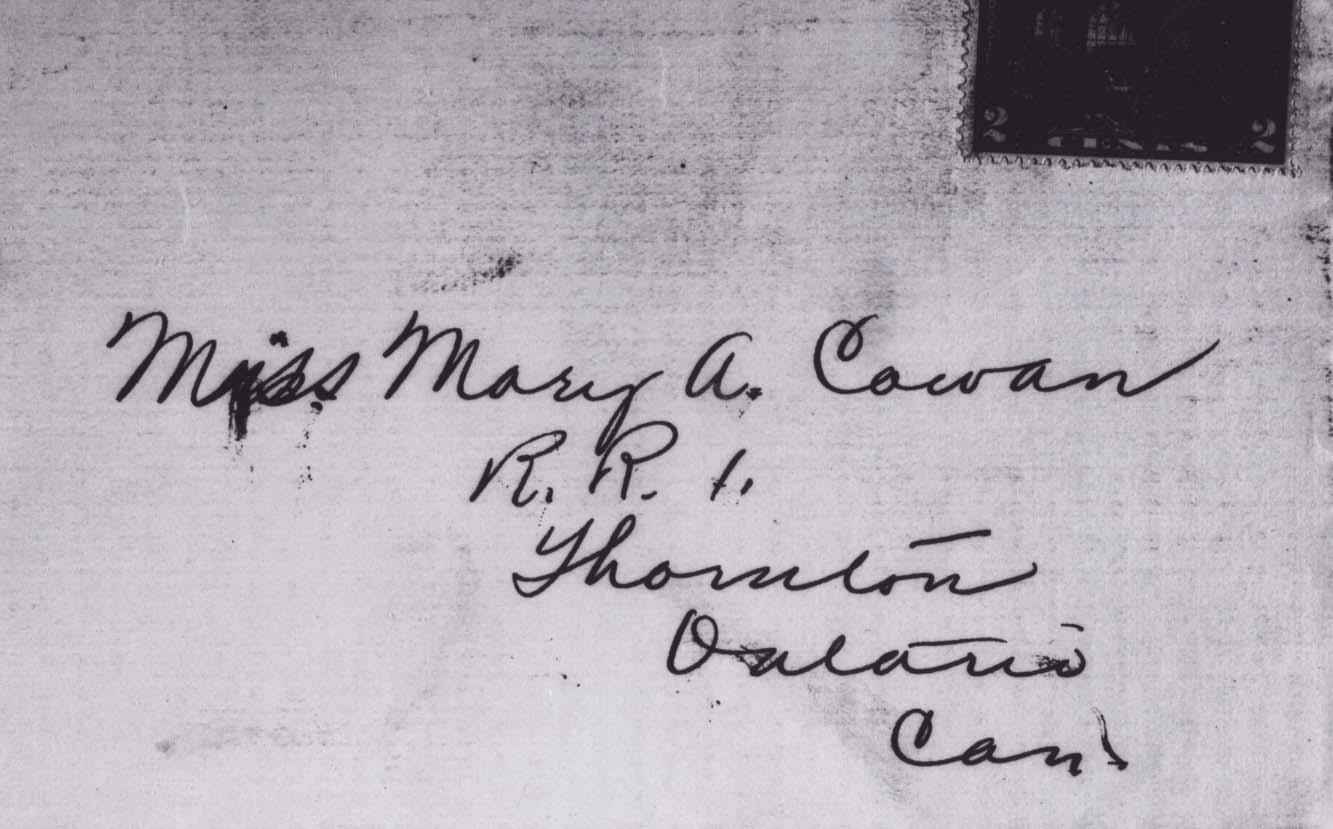 2 2
Miss Mary A. Cowan
R. R. 1.
Thornton
Ontario
Can.